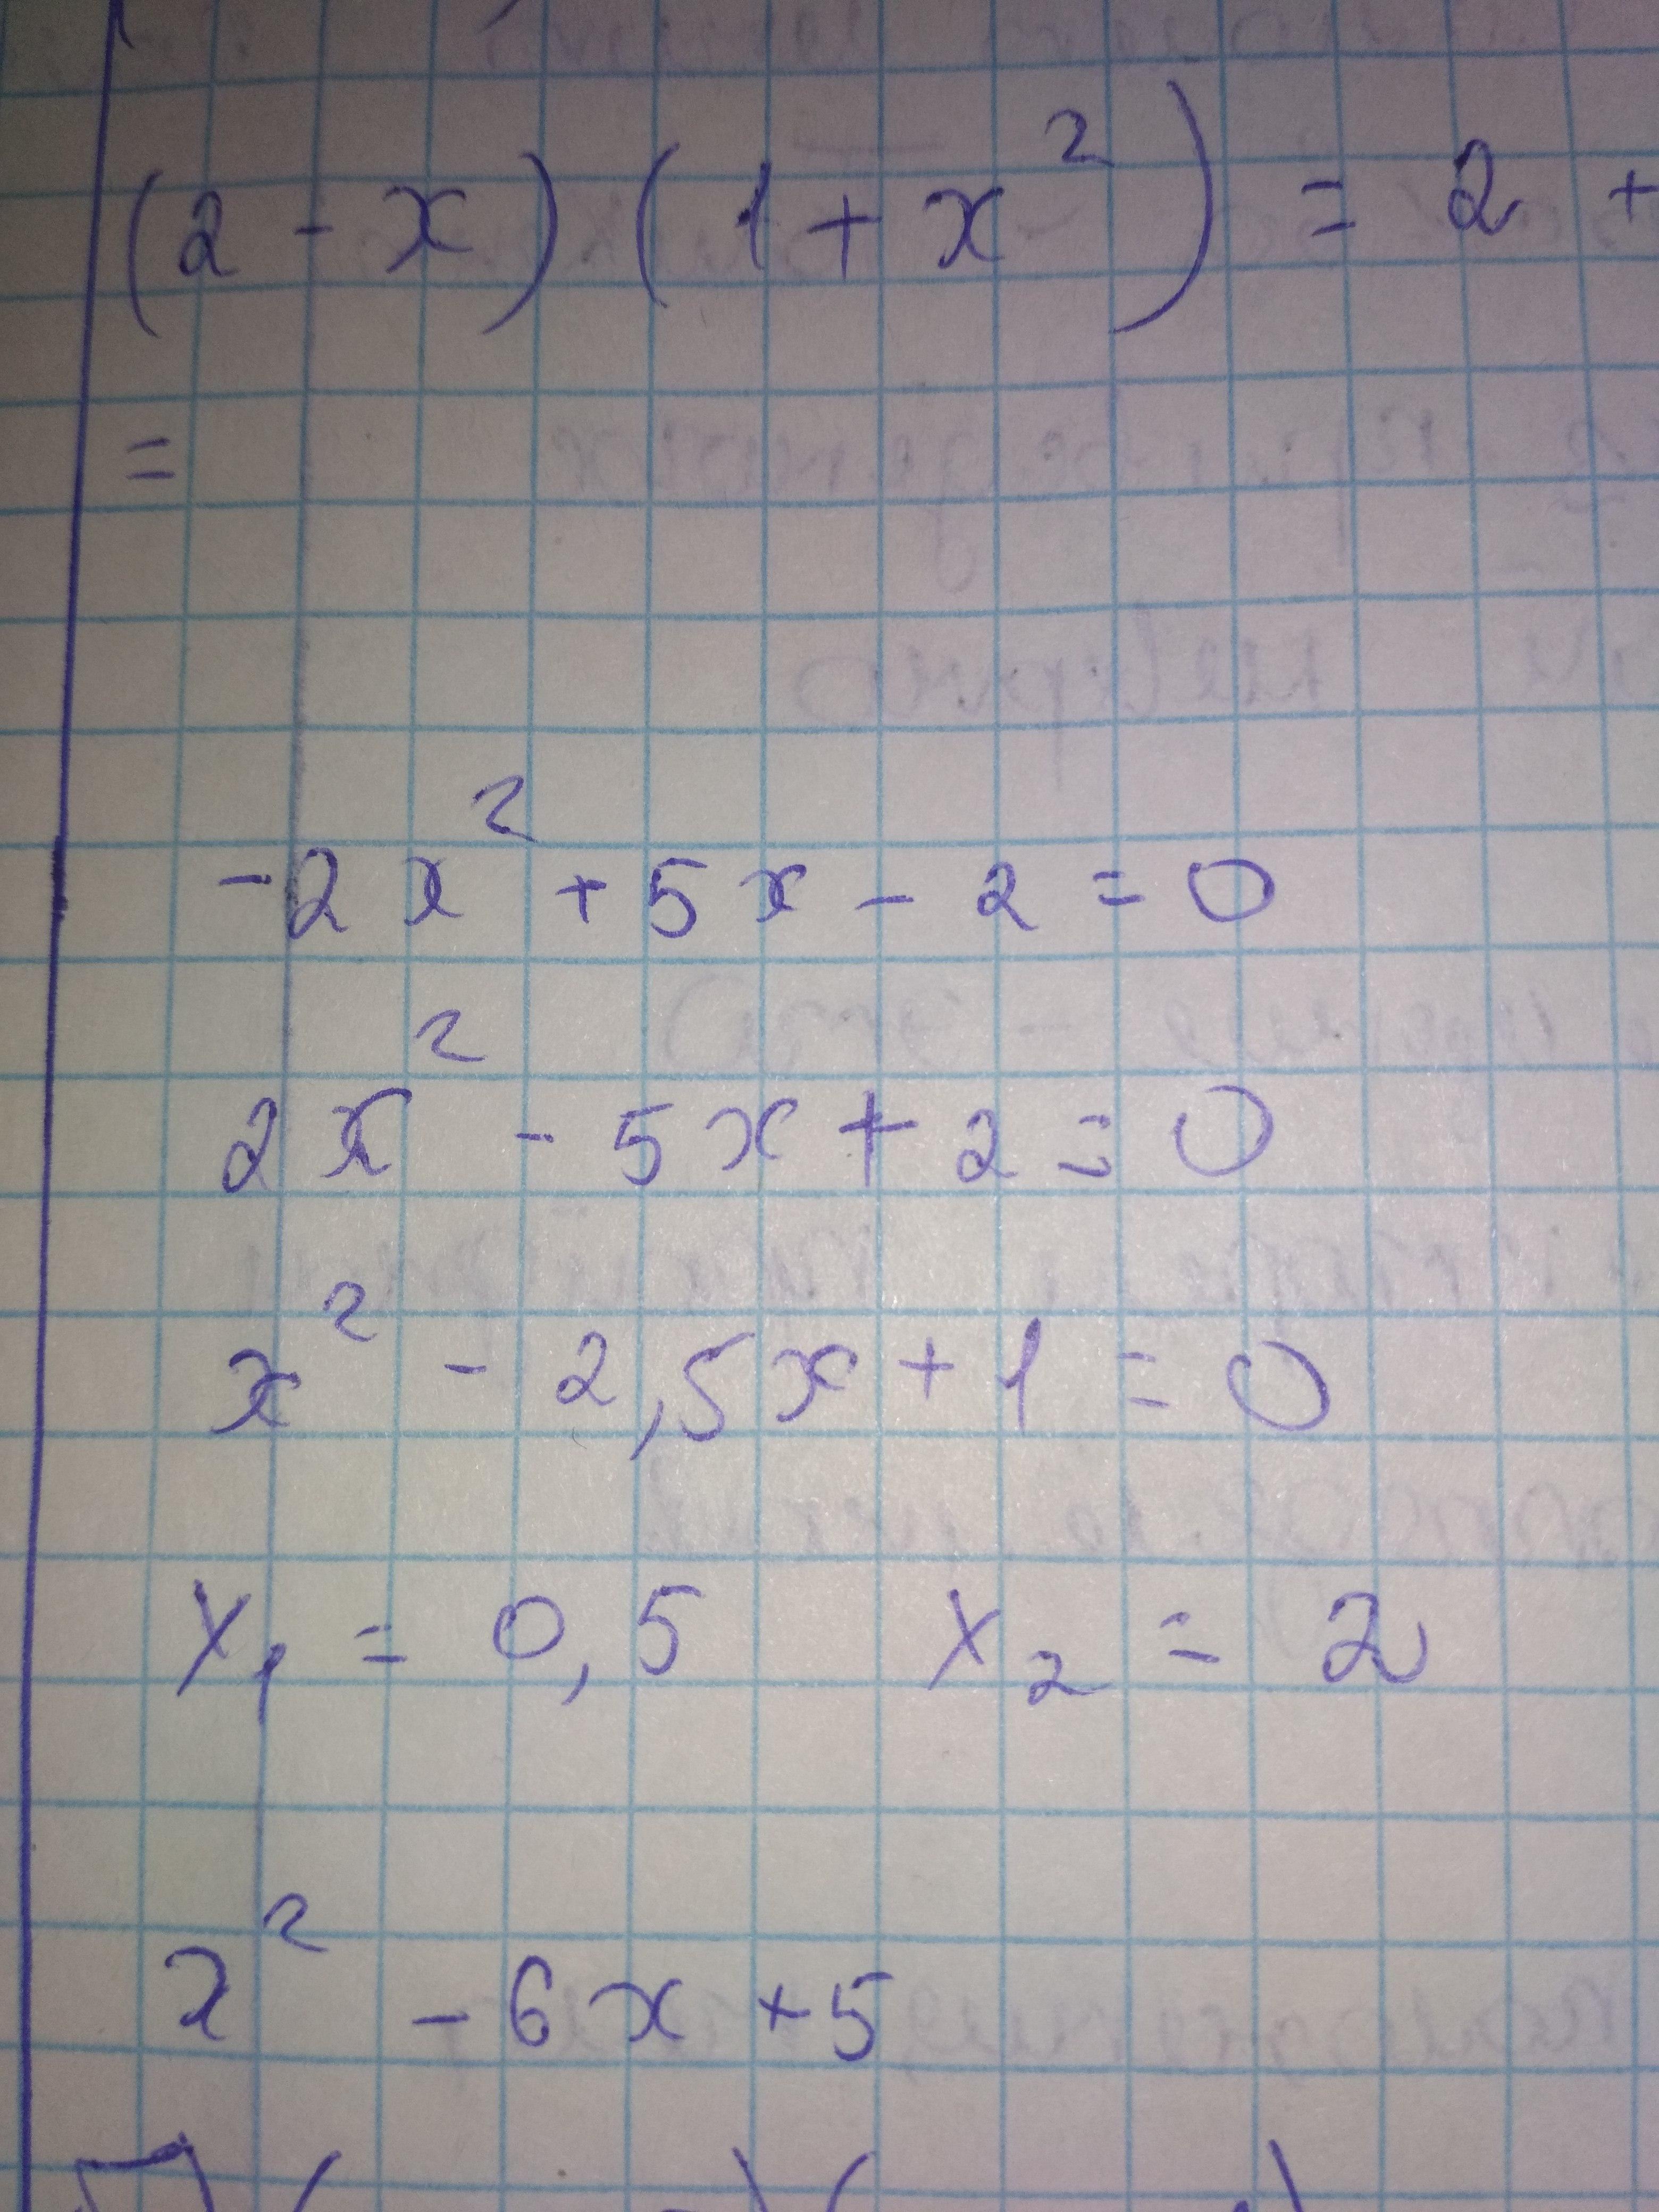 (2 - x)(1 + x²) = 2 +
=
-2x² + 5x - 2 = 0
2x² - 5x + 2 = 0
x² - 2,5x + 1 = 0
x₁ = 0,5 x₂ = 2
x² - 6x + 5